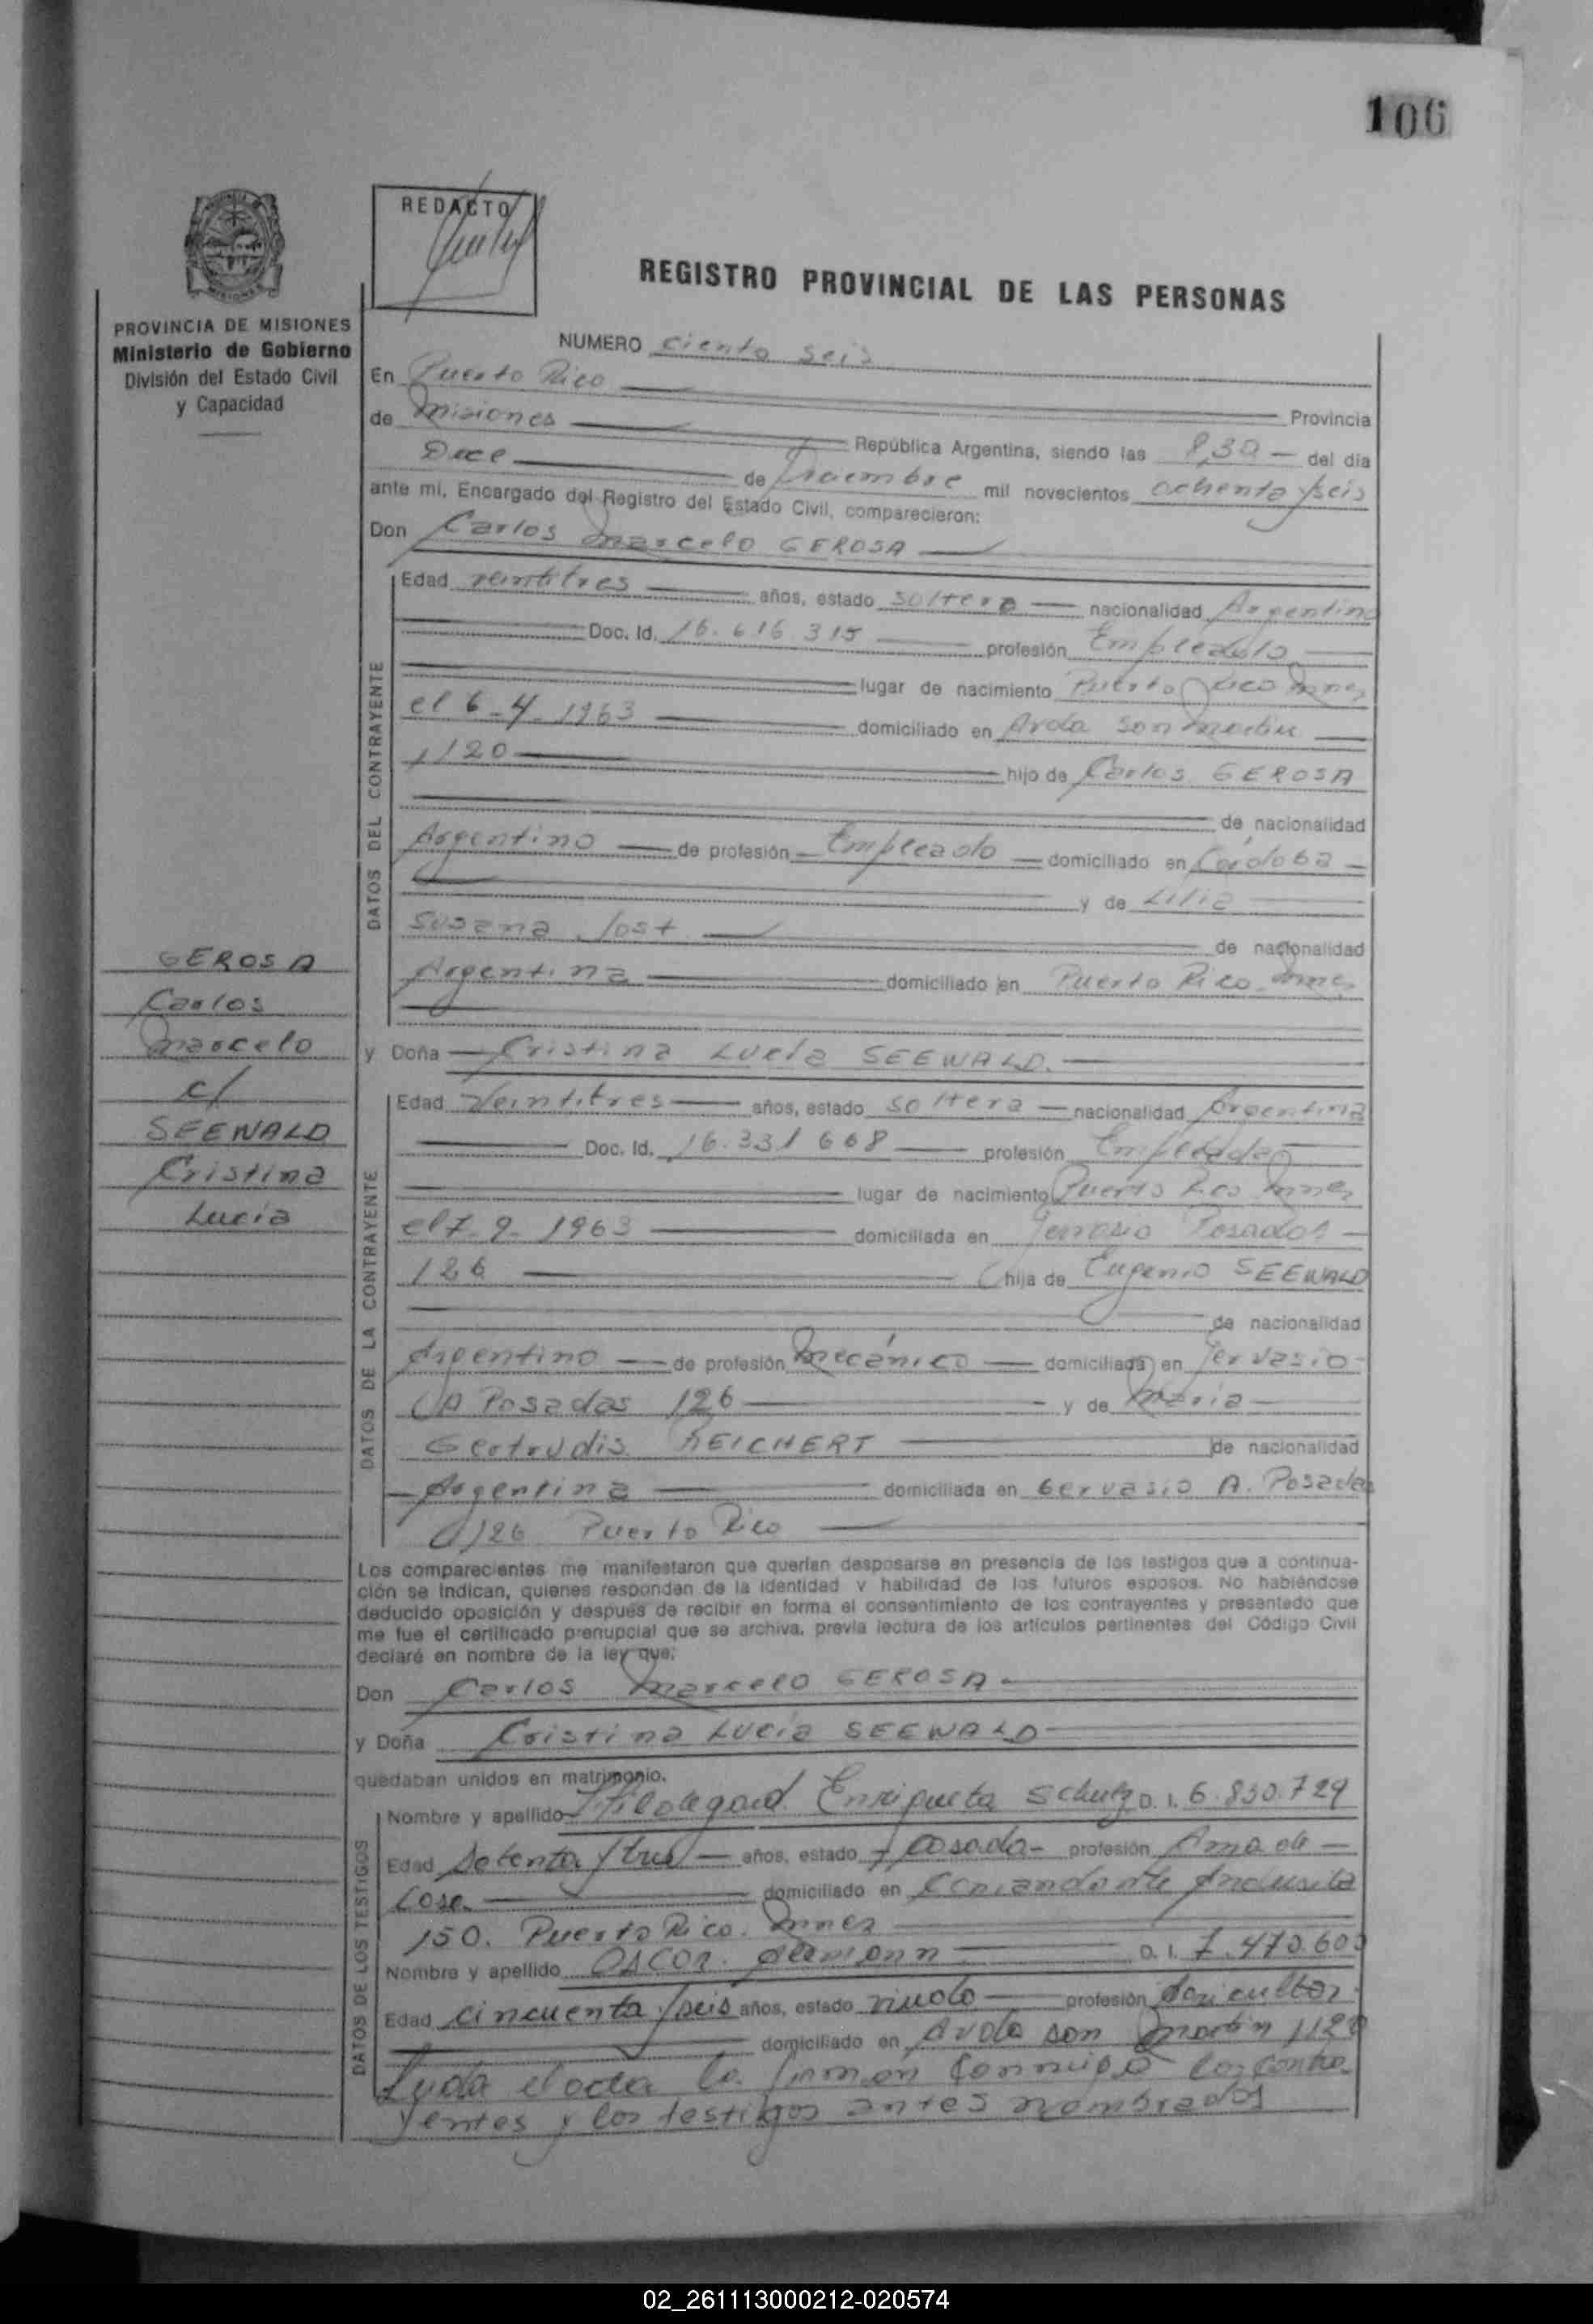 106
REDACTO
REGISTRO PROVINCIAL DE LAS PERSONAS
PROVINCIA DE MISIONES
Ministerio de Gobierno
División del Estado Civil
y Capacidad
NUMERO ciento seis
En Puerto Rico Provincia
de Misiones República Argentina, siendo las 8,30 del día
Doce de Diciembre mil novecientos ochenta y seis
ante mi, Encargado del Registro del Estado Civil, comparecieron:
Don Carlos Marcelo GEROSA
DATOS DEL CONTRAYENTE
Edad veintitres años, estado soltero nacionalidad Argentino
Doc. Id. 16.616.315 profesión Empleado
lugar de nacimiento Puerto Rico Mnes
el 6-4-1963 domiciliado en Avda San Martin
1120 hijo de Carlos GEROSA
de nacionalidad
Argentino de profesión Empleado domiciliado en Córdoba
y de Lilia
Susana Jost de nacionalidad
Argentina domiciliado en Puerto Rico Mnes
GEROSA
Carlos
Marcelo
c/
SEEWALD
Cristina
Lucia
y Doña Cristina Lucía SEEWALD.
DATOS DE LA CONTRAYENTE
Edad Veintitres años, estado soltera nacionalidad Argentina
Doc. Id. 16.331 668 profesión Empleada
lugar de nacimiento Puerto Rico Mnes
el 7-9-1963 domiciliada en Gervasio Posadas
126 hija de Eugenio SEEWALD
de nacionalidad
Argentino de profesión Mecánico domiciliada en Gervasio
A Posadas 126 y de María
Gertrudis REICHERT de nacionalidad
Argentina domiciliada en Gervasio A. Posadas
126 Puerto Rico
Los comparecientes me manifestaron que querían desposarse en presencia de los testigos que a continua-
ción se indican, quienes responden de la identidad y habilidad de los futuros esposos. No habiéndose
deducido oposición y después de recibir en forma el consentimiento de los contrayentes y presentado que
me fue el certificado prenupcial que se archiva, previa lectura de los artículos pertinentes del Código Civil
declaré en nombre de la ley que:
Don Carlos Marcelo GEROSA
y Doña Cristina Lucía SEEWALD
quedaban unidos en matrimonio.
DATOS DE LOS TESTIGOS
Nombre y apellido Hildegard Enriqueta Schulz D. I. 6.830.729
Edad Setenta y tres años, estado casada profesión Ama de
Casa domiciliado en Comandante Andresito
150. Puerto Rico. Mnes
Nombre y apellido Oscar D. I. 7.470.603
Edad cincuenta y seis años, estado viudo profesión Agricultor
domiciliado en Avda San Martin 1120
Leida el acta la firman conmigo los contra-
yentes y los testigos antes nombrados
02_261113000212-020574